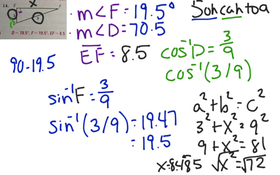 14.
x
m∠F = 19.5°
m∠D = 70.5
EF = 8.5
Sohcahtoa
cos⁻¹D = 3/9
cos⁻¹(3/9)
90-19.5
sin⁻¹F = 3/9
sin⁻¹(3/9) = 19.47
= 19.5
a² + b² = c²
3² + x² = 9²
9 + x² = 81
√x² = √72